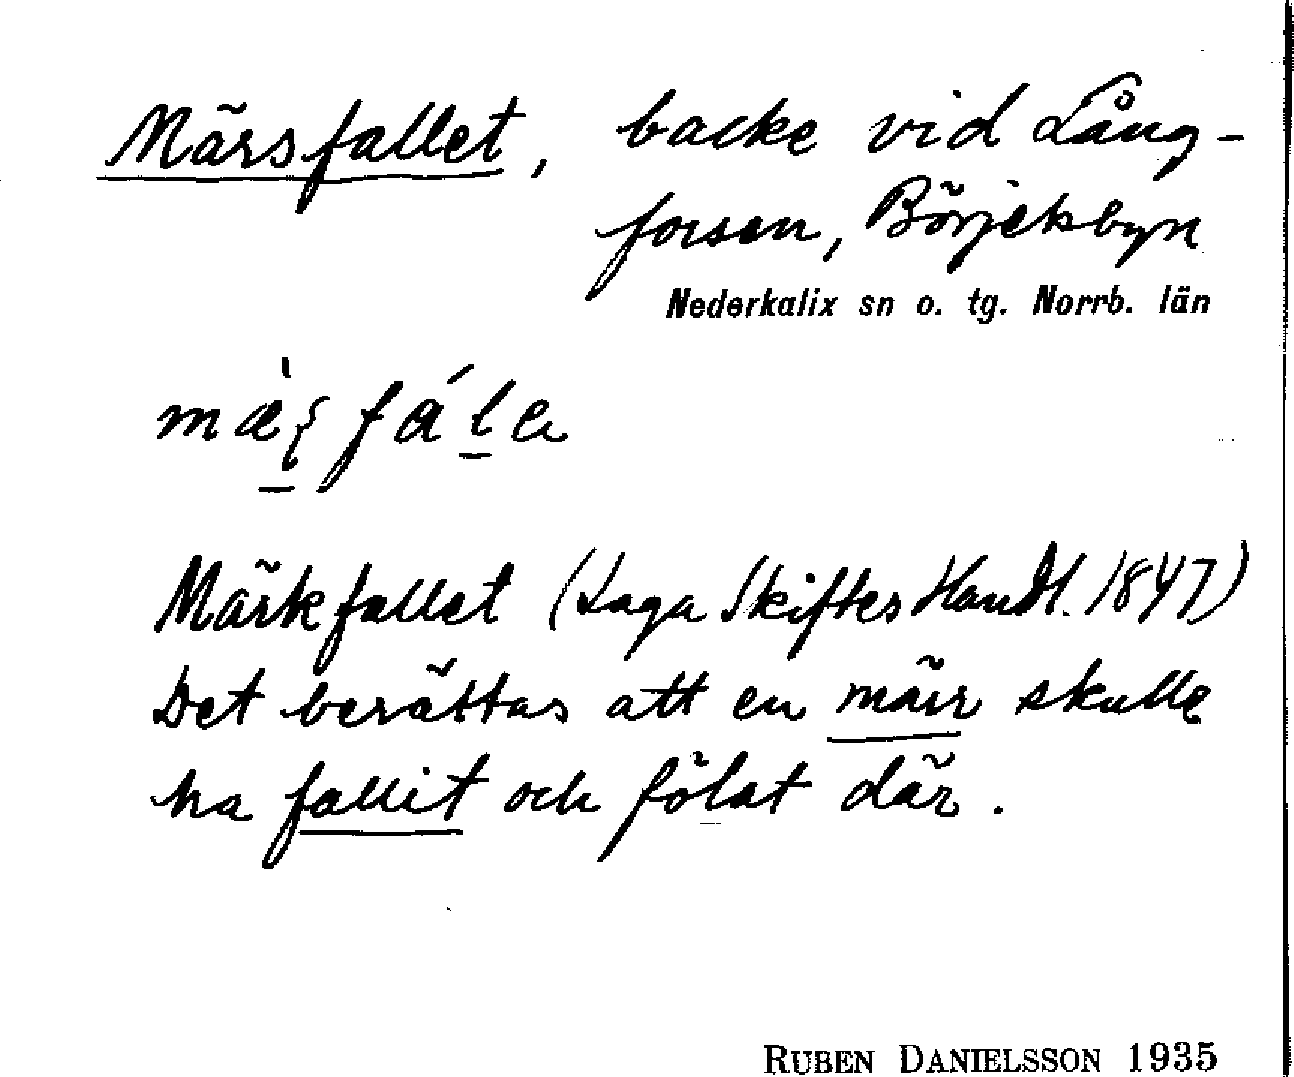 Märsfallet, backe vid Lång-
forsen, Börjelsbyn
Nederkalix sn o. tg. Norrb. län
Märkfallet (Laga Skiftes Handl. 1847)
Det berättas att en märr skulle
ha fallit och fölat där.
RUBEN DANIELSSON 1935